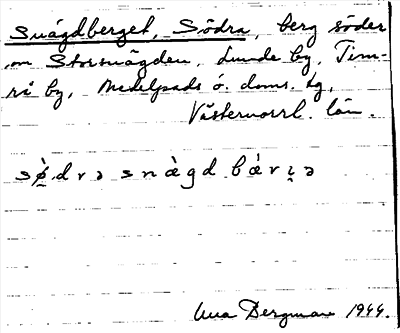 Snågdberget, Södra, berg söder
om Storsnågden, Lunde by, Tim-
rå by, Medelpads ö. doms. lg,
Västernorrl. län.
sø̀.drə snàgd bǽrɪ̣ə
Una Bergman 1944.